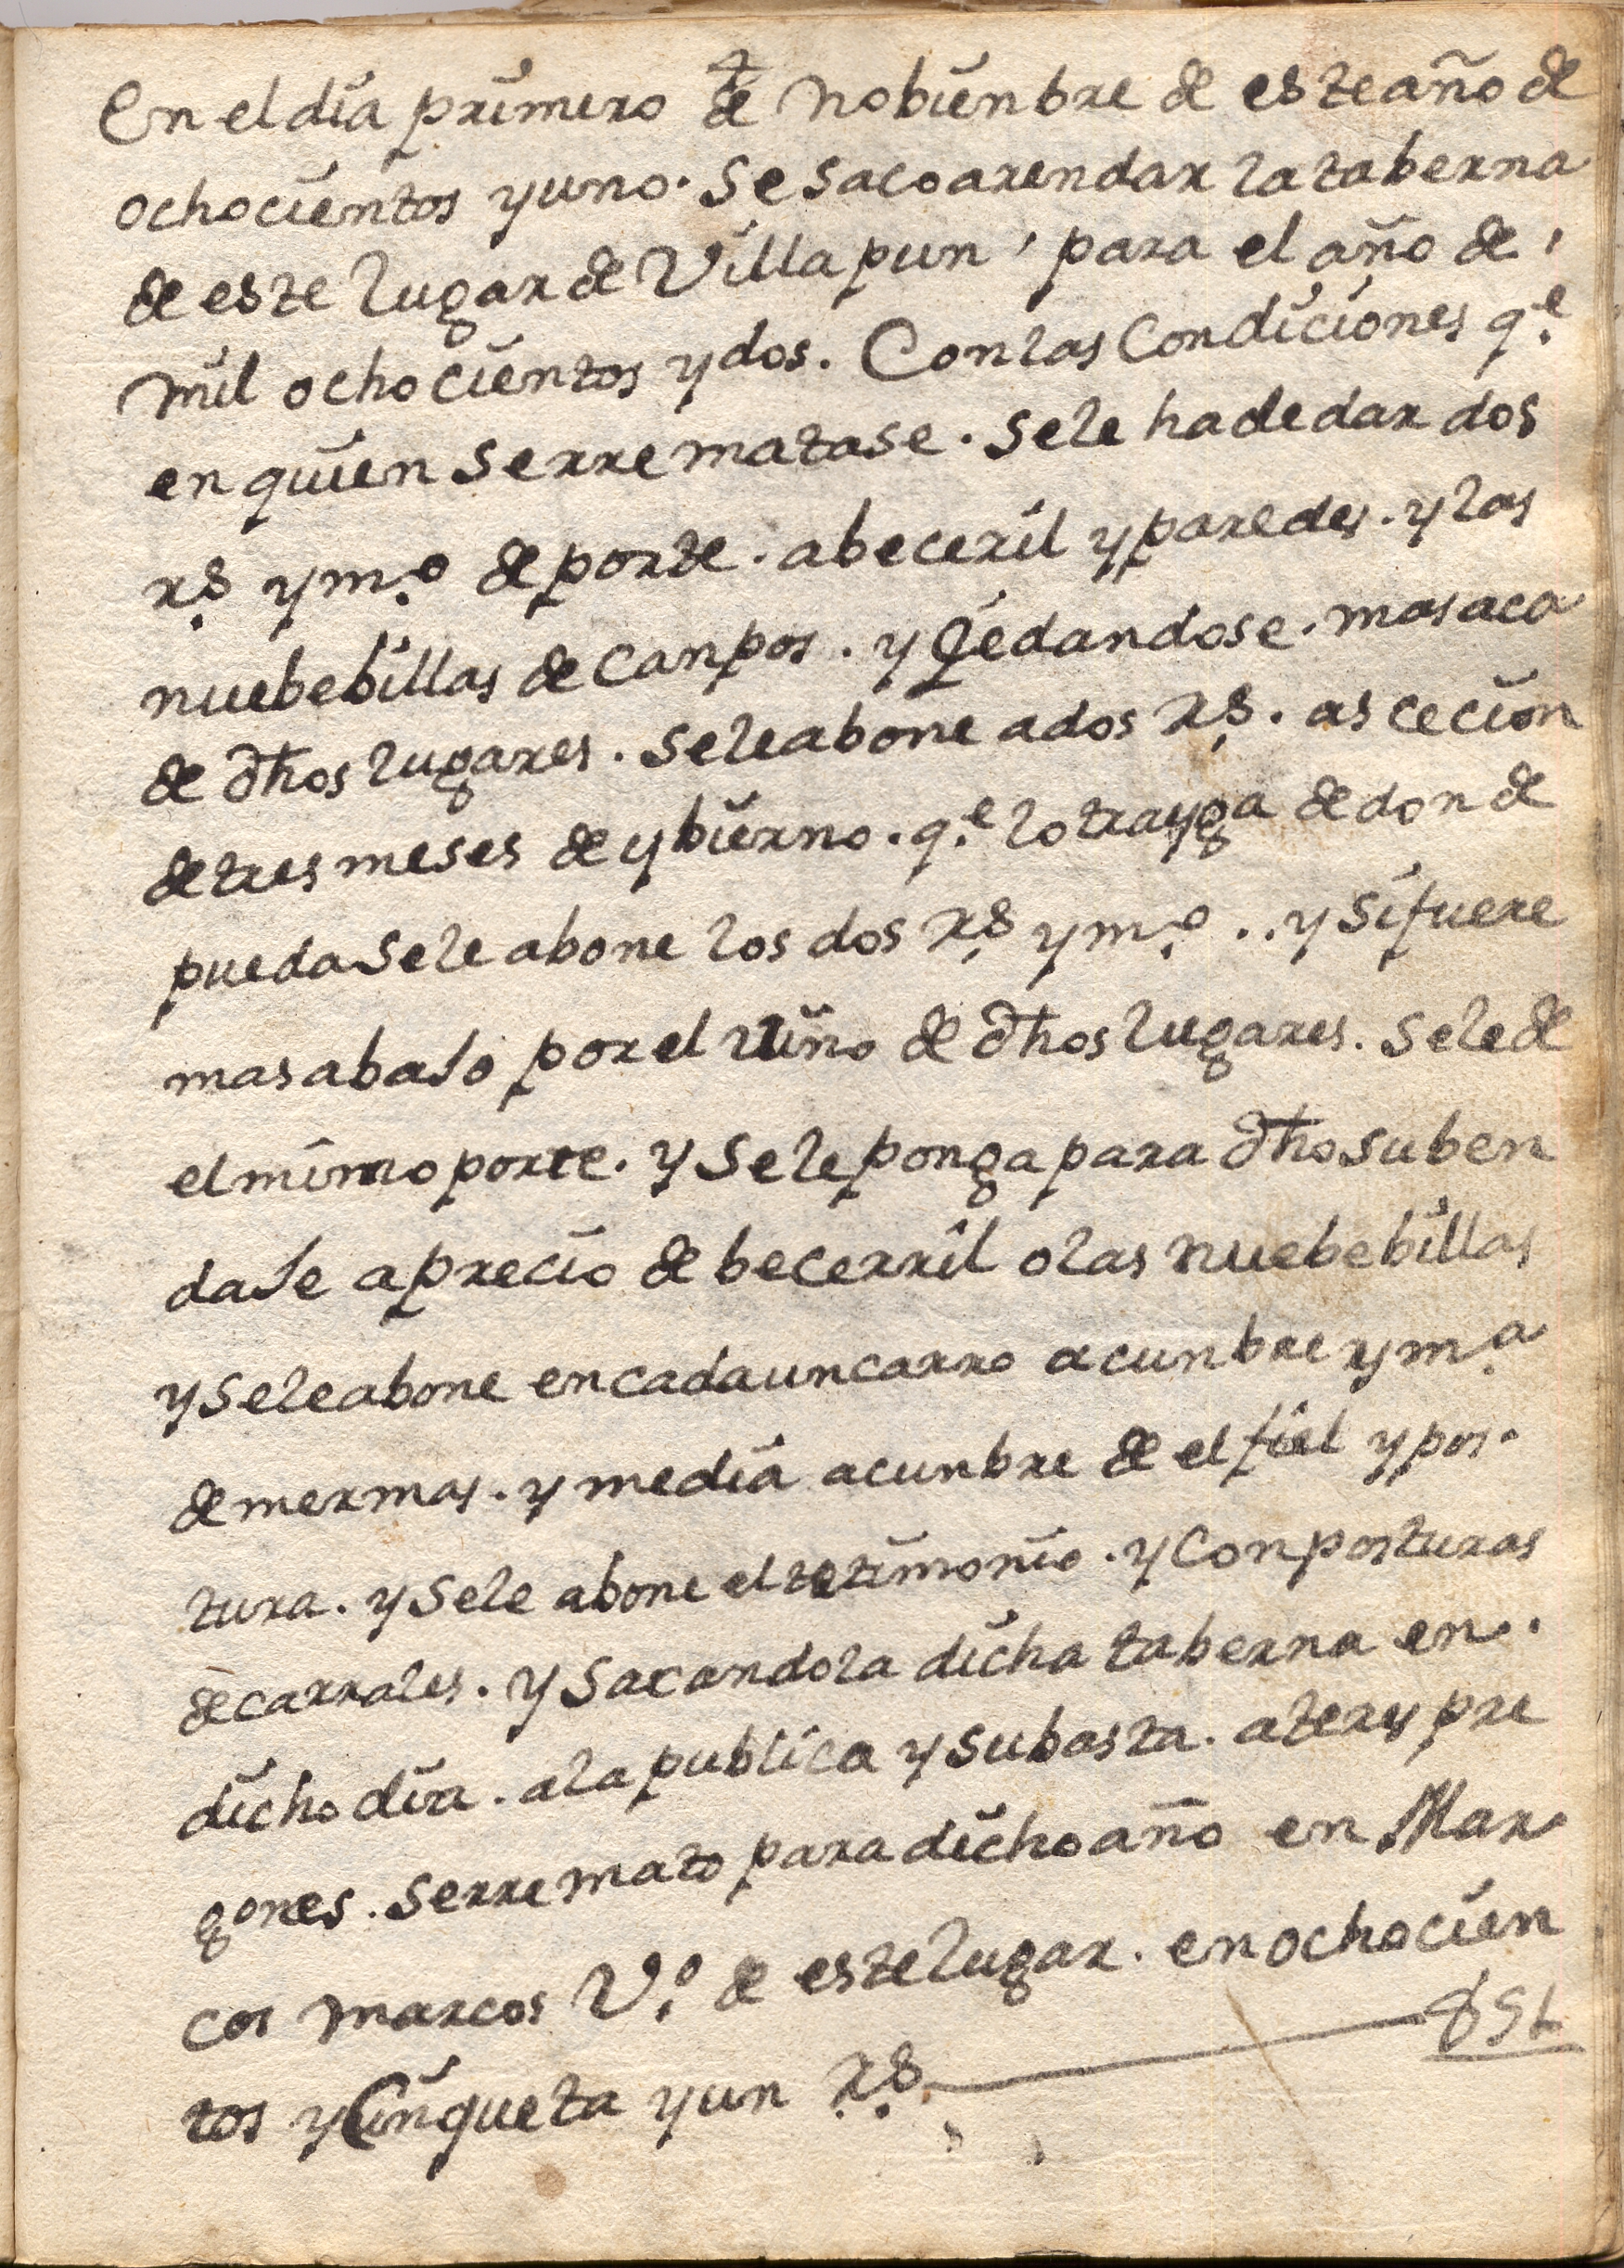 En el dia primero de nobienbre de este año de
ochocientos y uno. Se saco arendar la taberna
de este lugar de Villapun, para el año de,
mil ochocientos y dos. Con las Condiciones q.e
en quien Serrematase. Sele ha de dar dos
rs. y m.o de porte. a beceril y paredes. y las
nuebe billas de Canpos. y Qedandose. mas aca
de dhos lugares. Sele abone a dos rs. asceción
de tres meses de ybierno. q.e lo trayga de donde
pueda Sele abone los dos rs. y m.o .. y Si fuere
mas abaJo por el vino de dhos lugares. Sele de
el mimo porte. y Sele ponga para dho suben
daJe a precio de becerril o las nuebe billas
y Sele abone en cada un carro acunbre y m.a
de mermas. y media acunbre de el fiel y pos.
tura. y Sele abone el tetimonio. y Conposturas
de carrales. y Sacandola dicha taberna en.
dicho dia. a la publica y subasta. a teres pre
gones. Serremato para dicho año en Mar
cos marcos V.o de este lugar. en ochocien
tos y Cinqueta y un rs. 851